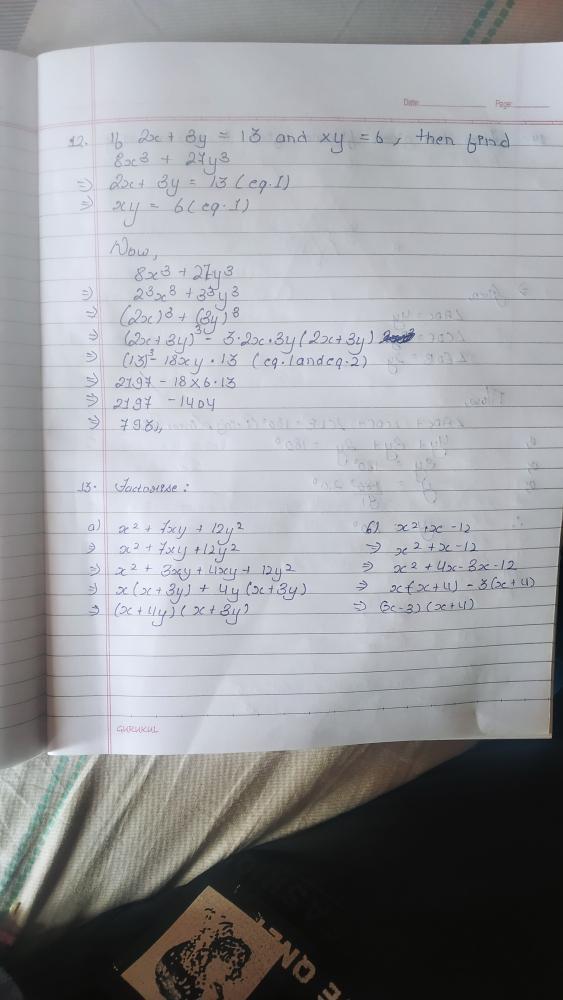 Date: Page:
12. If 2x + 3y = 13 and xy = 6, then find
8x³ + 27y³
⇒ 2x + 3y = 13 (eq. 1)
⇒ xy = 6 (eq. 1)
Now,
8x³ + 27y³
⇒ 2³x³ + 3³y³
⇒ (2x)³ + (3y)³
⇒ (2x + 3y)³ - 3·2x·3y (2x + 3y)
⇒ (13)³ - 18xy · 13 (eq. 1 and eq. 2)
⇒ 2197 - 18 × 6 · 13
⇒ 2197 - 1404
⇒ 793,,
13. Factorise:
a) x² + 7xy + 12y²
⇒ x² + 7xy + 12y²
⇒ x² + 3xy + 4xy + 12y²
⇒ x(x + 3y) + 4y(x + 3y)
⇒ (x + 4y) (x + 3y)
b) x² + x - 12
⇒ x² + x - 12
⇒ x² + 4x - 3x - 12
⇒ x(x + 4) - 3(x + 4)
⇒ (x - 3) (x + 4)
GURUKUL